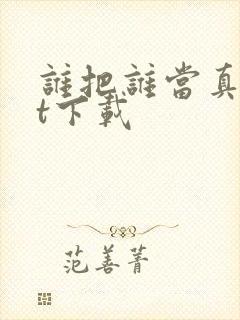 誰把誰當真
t下載
范善菁